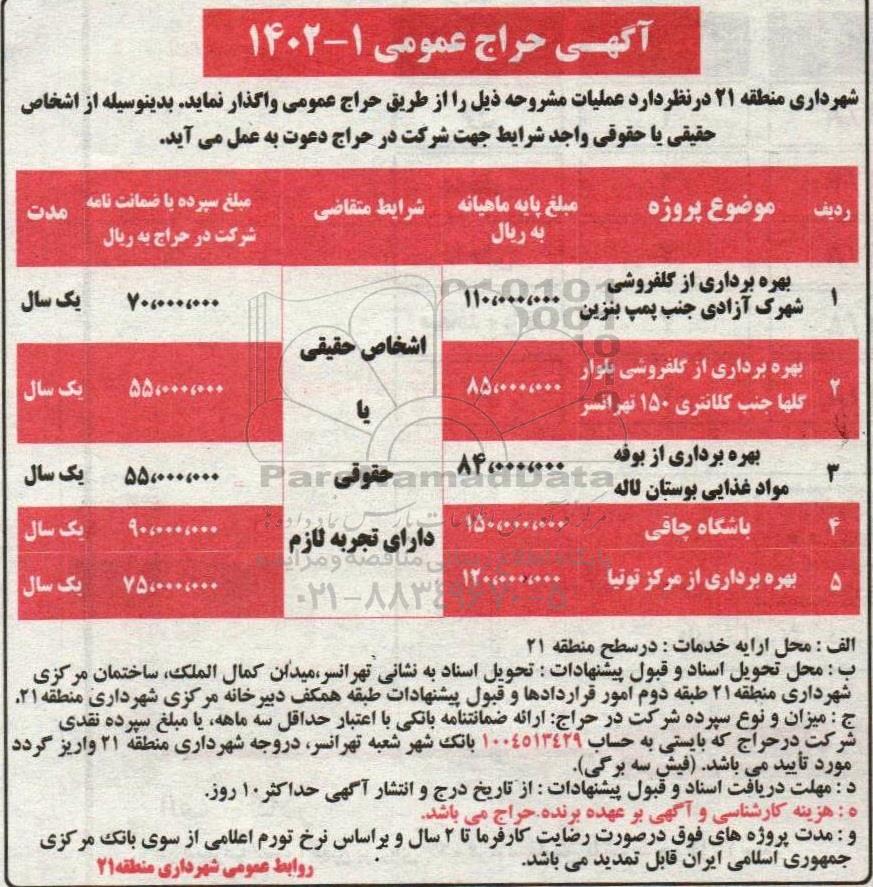 آگهی حراج عمومی ۱-۱۴۰۲
شهرداری منطقه ۲۱ درنظردارد عملیات مشروحه ذیل را از طریق حراج عمومی واگذار نماید. بدینوسیله از اشخاص
حقیقی یا حقوقی واجد شرایط جهت شرکت در حراج دعوت به عمل می آید.
ردیف موضوع پروژه مبلغ پایه ماهیانه به ریال شرایط متقاضی مبلغ سپرده یا ضمانت نامه شرکت در حراج به ریال مدت
۱ بهره برداری از گلفروشی شهرک آزادی جنب پمپ بنزین ۱۱۰،۰۰۰،۰۰۰ ۷۰،۰۰۰،۰۰۰ یک سال
اشخاص حقیقی
۲ بهره برداری از گلفروشی بلوار گلها جنب کلانتری ۱۵۰ تهرانسر ۸۵،۰۰۰،۰۰۰ یا ۵۵،۰۰۰،۰۰۰ یک سال
۳ بهره برداری از بوفه مواد غذایی بوستان لاله ۸۴،۰۰۰،۰۰۰ حقوقی ۵۵،۰۰۰،۰۰۰ یک سال
۴ باشگاه چاقی ۱۵۰،۰۰۰،۰۰۰ دارای تجربه لازم ۹۰،۰۰۰،۰۰۰ یک سال
۵ بهره برداری از مرکز توتیا ۱۲۰،۰۰۰،۰۰۰ ۷۵،۰۰۰،۰۰۰ یک سال
ParsNamadData
پایگاه اطلاع رسانی مناقصه و مزایده
۰۲۱-۸۸۳۴۹۶۷۰-۵
الف : محل ارایه خدمات : درسطح منطقه ۲۱
ب : محل تحویل اسناد و قبول پیشنهادات : تحویل اسناد به نشانی تهرانسر،میدان کمال الملک، ساختمان مرکزی
شهرداری منطقه۲۱ طبقه دوم امور قراردادها و قبول پیشنهادات طبقه همکف دبیرخانه مرکزی شهرداری منطقه۲۱.
ج : میزان و نوع سپرده شرکت در حراج: ارائه ضمانتنامه بانکی با اعتبار حداقل سه ماهه، یا مبلغ سپرده نقدی
شرکت درحراج که بایستی به حساب ۱۰۰۴۵۱۳۴۲۹ بانک شهر شعبه تهرانسر، دروجه شهرداری منطقه ۲۱ واریز گردد
مورد تأیید می باشد. (فیش سه برگی).
د : مهلت دریافت اسناد و قبول پیشنهادات : از تاریخ درج و انتشار آگهی حداکثر ۱۰ روز.
ه : هزینه کارشناسی و آگهی بر عهده برنده حراج می باشد.
و : مدت پروژه های فوق درصورت رضایت کارفرما تا ۲ سال و براساس نرخ تورم اعلامی از سوی بانک مرکزی
جمهوری اسلامی ایران قابل تمدید می باشد.
روابط عمومی شهرداری منطقه۲۱